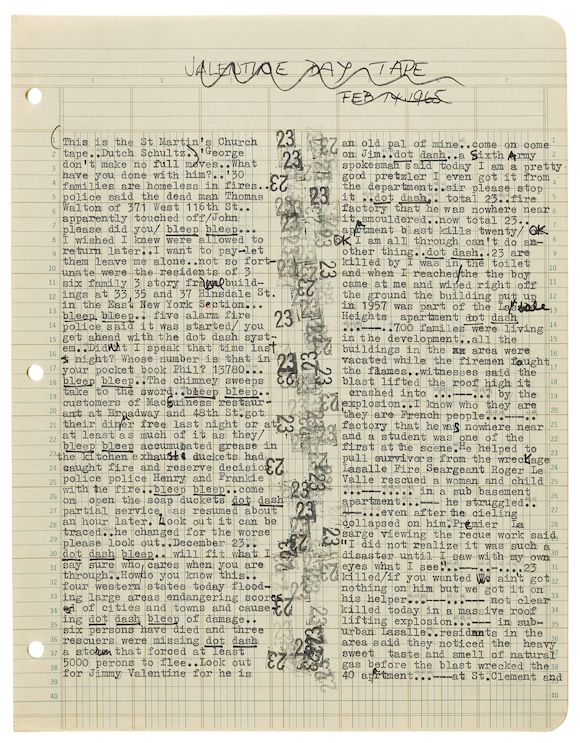 VALENTINE DAY TAPE
FEB 14.1965
(This is the St Martin's Church
tape..Dutch Schultz..)'George
don't make no full moves..What
have you done with him?..'30
families are homeless in fires..
police said the dead man Thomas
Walton of 371 West 116th St..
apparently touched off/John
please did you/ bleep bleep...
I wished I knew were allowed to
return later..I want to pay-let
them leave me alone..not so fort-
unate were the residents of 3
six family 3 story frame build-
ings at 33,35 and 37 Hinsdale St.
in the East New York Section...
bleep bleep.. five alarm fire
police said it was started/ you
get ahead with the dot dash syst-
em..Didnt I speak that time last
night? Whose number is that in
your pocket book Phil? 13780...
bleep bleep..The chimney sweeps
take to the sword..bleep bleep..
customers of restaur-
ant at Broadway and 48th St.got
their diner free last night or a
at least as much of it as they/
bleep bleep accumulated grease in
the kitchen exhaust duckets had
caught fire and reserve decision
police police Henry and Frankie
with he fire..bleep bleep..come
om open the soap duckets dot dash
partial service was resumed about
an hour later. Look out it can be
traced..he changed for the worst
please look out..December 23..
dot dash bleep.. will fit what I
say sure who cares when you are
through..Howdo you know this..
four western states today flood-
ing large areas endangering scor
ed of cities and towns and caus-
ing dot dash bleep of damage..
six persons have died and three
rescuers were missing dot dash
a storm that forced at least
5000 perons to flee..Look out
for Jimmy Valentine for he is
23
23
23
23
23
23
23
23
23
23
23
23
23
23
an old pal of mine..come on come
on Jim..dot dash..a Sixth Army
spokesman said today I am a pretty
good pretzler I even got it from
the department..sir please stop
it ..dot dash.. total 23..fire
factory that he was nowhere near
it smouldered..now total 23..
Apartment blast kills twenty/ OK
OK I am all through can't do an-
other thing..dot dash..23 are
killed by I was in the toilet
and when I reached/the the boy
came at me and wired right off
the ground the building put up
in 1957 was part of the
Heights apartment dot dash ...
...----...700 familes were living
in the development...all the
buildings in the area were
vacated while the firemen fought
the flames..witnesses said the
blast lifted the roof high it
crashed into ...----... by the
explosion..I know who they are
they are French people...----..
factory that he was nowhere near
and a student was one of the
first at the scene..He helped to
pull survivors from the wreckage
Lasalle Fire Seargeant Roger Le
Valle rescued a woman and child
...---- ... in a sub basement
apartment...---- he struggled..
----...even after the cieling
collapsed on him..Premier La
sarge viewing the recue work said
"I did not realize it was such a
disaster until I saw with my own
eyes what I see:----....23
killed/if you wanted We ain't got
nothing on him but we got it on
his helper...----....not clear
killed today in a massive roof
lifting explosion..---- in sub-
urban Lasalle..residents in the
area said they noticed the heavy
sweet taste and smell of natural
gas before the blast wrecked the
40 aprtment...----at St.Clement and